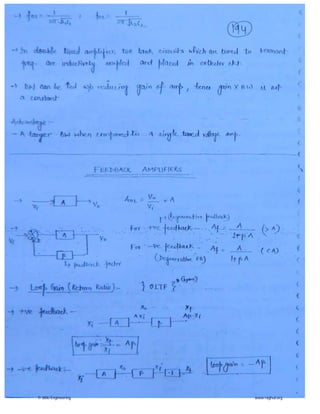 → f₀₁ = 1 / 2π√L₁C₁ ; f₀₂ = 1 / 2π√L₂C₂
194
→ In double tuned amplifier, two tank circuits which are tuned to resonant
freq. are inductively coupled and placed in collector ckt.
→ BW can be ↑ed w/o reducing gain of amp, hence gain X BW is not
a constant
Advantage :-
- A larger BW when compared to a single tuned voltage amp.
FEEDBACK AMPLIFIERS
→ Vi A Vo
AOL = Vo / Vi = A
(Regenerative feedback)
→ Vi A Vo
β
↳ feedback factor
For +ve feedback - Af = A / 1-Aβ (>A)
For -ve feedback - Af = A / 1+βA (<A)
(Degenerative fb)
→ Loop Gain (Return Ratio) :- } OLTF
→ +ve feedback -
Xi A Xo AXi β Xf Aβ.Xi
loop gain = Xf / Xi = Aβ
→ -ve feedback :- Xi A Xo β Xf -1
loop gain = -Aβ
© Bibi Engineering
www.raghul.org